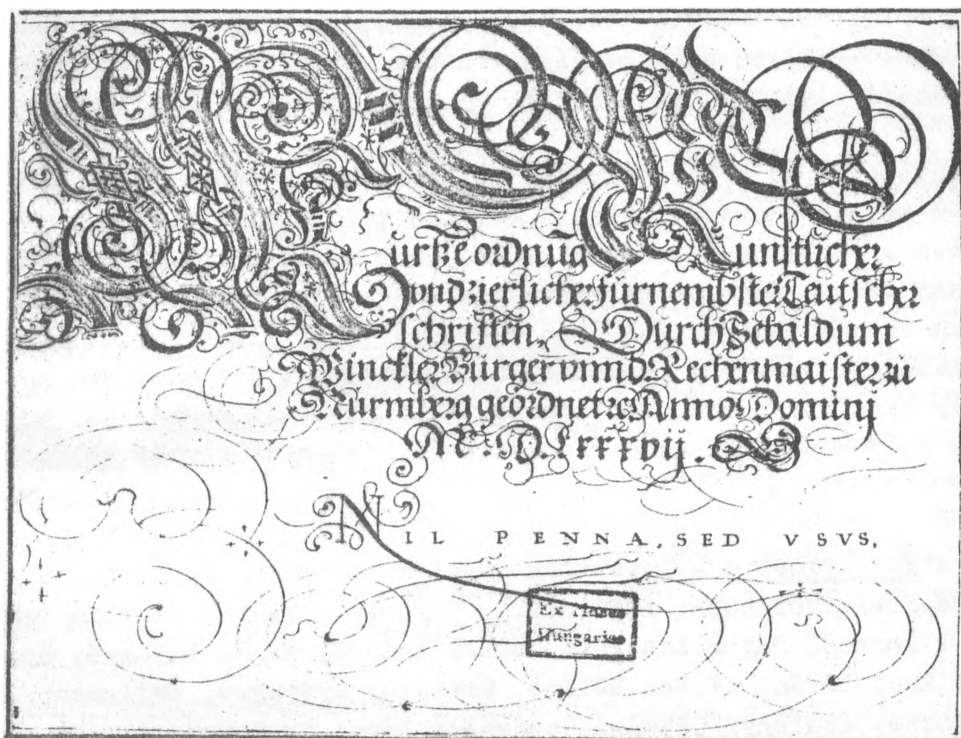 Kurtze ordnūg Kunstlicher
vnd zierlicher fürnembster Teutscher
schrifften, Durch Sebaldum
Winckler Burger vnnd Rechenmaister zu
Nürmberg geordnet ꝛc Anno Dominj
M.D.lxxxvij.
NIL PENNA, SED VSVS,
Ex Museo
Hungarico